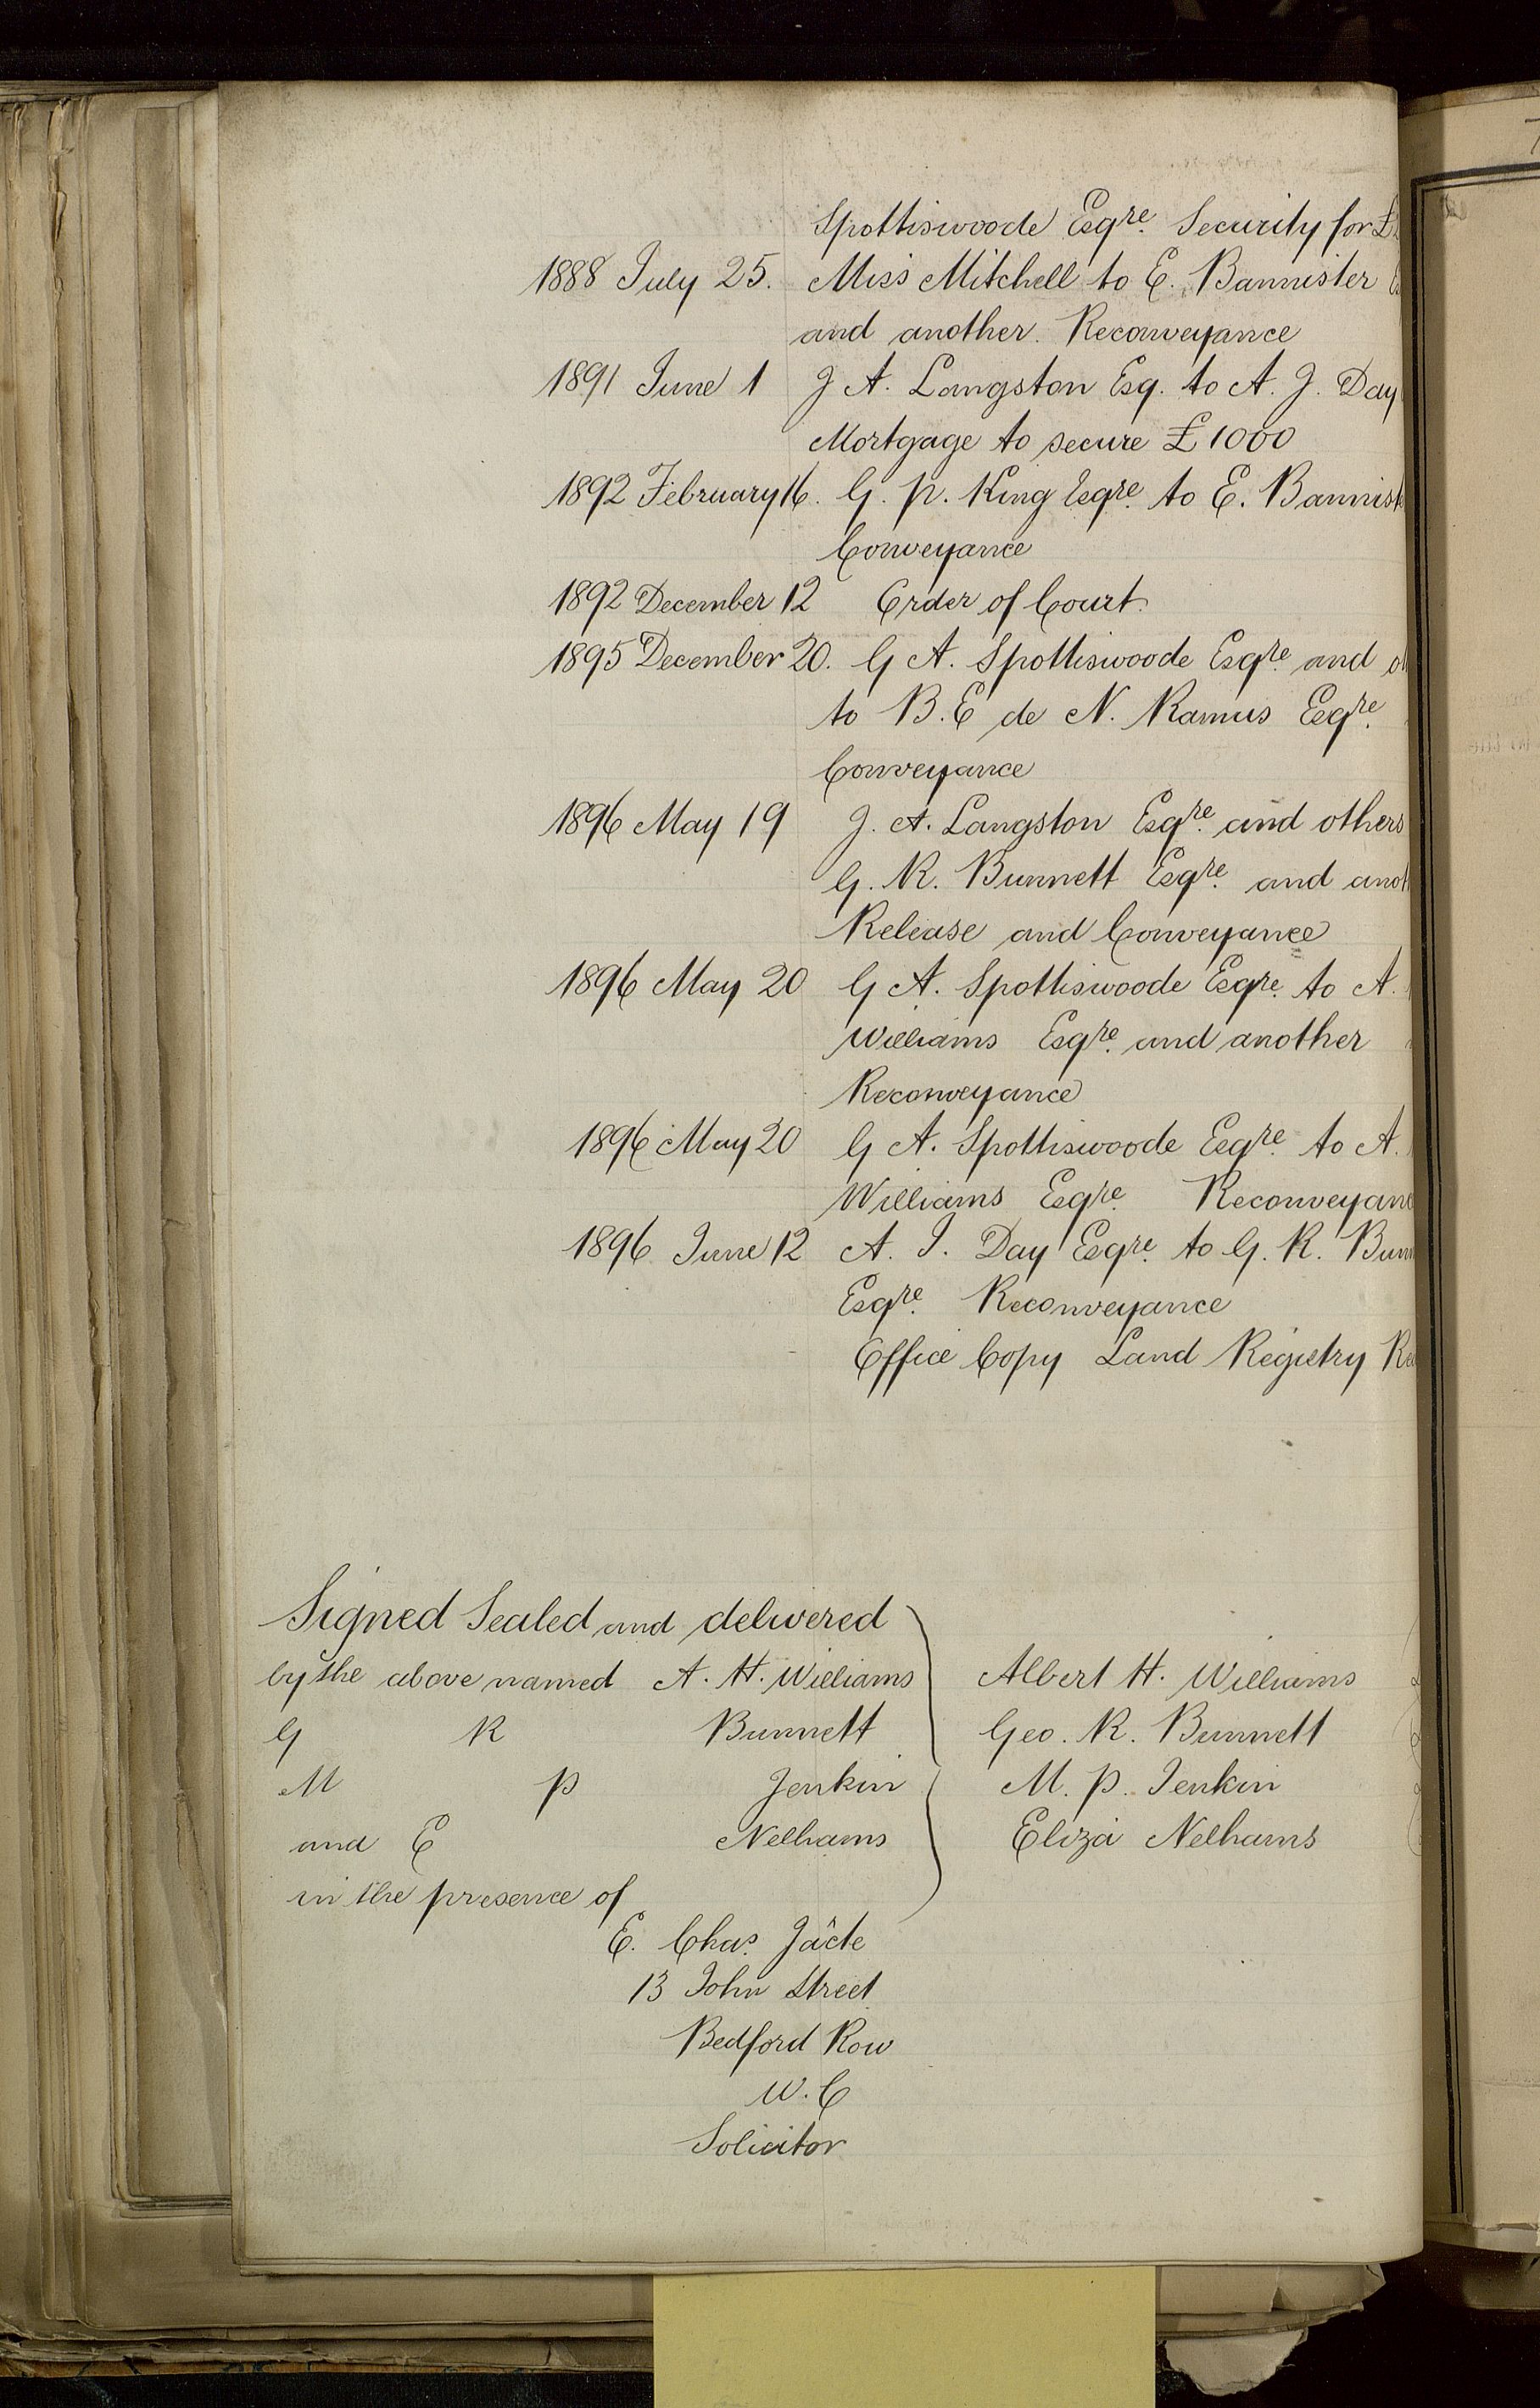 Spottiswoode Esqre. Security for £
1888 July 25. Miss Mitchell to E. Bannister
and another. Reconveyance
1891 June 1 J A. Langston Esq. to A. J. Day
Mortgage to secure £1000
1892 February 16. G. P. King Esqre. to E. Bannist
Conveyance
1892 December 12 Order of Court.
1895 December 20. G A. Spottiswoode Esqre. and
to B. E de N. Ramus Esqre.
Conveyance
1896 May 19 J. A. Langston Esqre. and others
G. R. Bunnett Esqre. and anot
Release and Conveyance
1896 May 20 G A. Spottiswoode Esqre. to A.
Williams Esqre. and another
Reconveyance
1896 May 20 G A. Spottiswoode Esqre. to A.
Williams Esqre. Reconveyanc
1896 June 12 A. J. Day Esqre. to G. R. Bunn
Esqre. Reconveyance
Office Copy Land Registry
Signed Sealed and delivered
by the above named A. H. Williams Albert H. Williams
G R Bunnett Geo. R. Bunnett
M P Jenkin M. P. Jenkin
and E Nelhams Eliza Nelhams
in the presence of
E. Chas.
13 John Street
Bedford Row
W. C
Solicitor